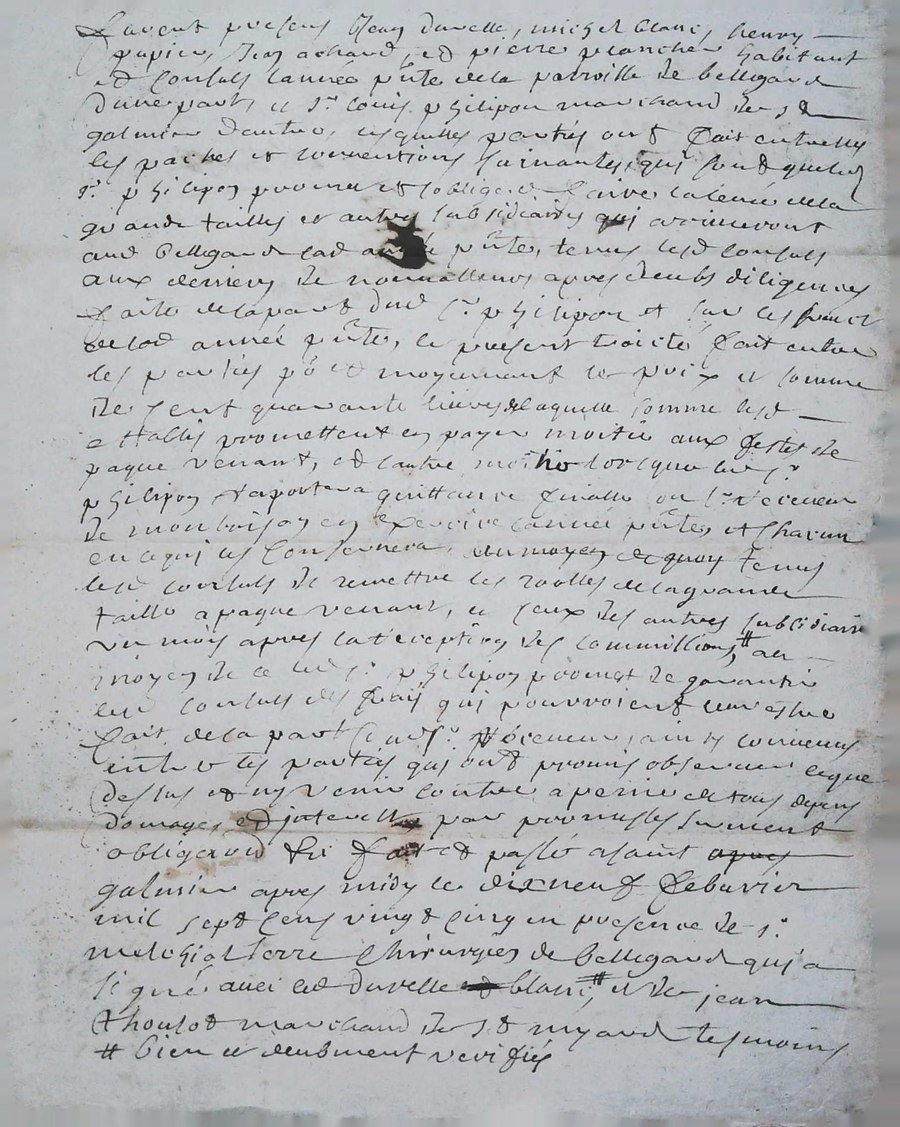 furent presens Jean duvelle, michel blanc, henry
papier, Jean achard, et pierre planchet habitant
et consuls lannee pnte de la parroisse de bellegard
dune part, et sr louis philipon marchand de st
galmier dautre, lesquelles parties ont fait entrelles
les pactes et conventions suivantes, qui sont que led
sr philipon promet et soblige de faire la levee de la
grande taille et autres subsidiaires qui arriveront
aud bellegard lad année pnte, tenus lesd consuls
aux derniers de nonvalleurs apres deubs diligences
faite de la part dud sr philipon et sur les fruict
de lad année pnte, le present traicté fait entre
les parties po et moyennant le prix et somme
de cent quarante livres de laquelle somme lesd
establis promettent en payer moitié aux festes de
paque venant, et lautre moitie lorsque led sr
philipon rapportera quittance finalle du sr receveur
de montbrison en exercice lannée pnte, et chacun
en ce qui les concernera, au moyen de quoy tenus
lesd consuls de remettre les rolles de la grande
taille a paque venant, et ceux des autres subsidiaire
un mois apres la reception des commissions, # au
moyen de ce led sr philipon promet de garantir
lesd consuls des frais qui pourroient leur estre
fait de la part dud sr receveur, ainsy convenus
entre les parties qui ont promis observer ce que
dessus et ny venir contre a peine de tous depens
domages et interests par promesses serment
obligeaons fait et passé a saint
galmier apres midy le dixneuf febvrier
mil sept cens vingt cinq en presence de sr
terre chirurgien de bellegard qui a
signé avec led duvelle blanc, # et de jean
thoulot marchand de st myard tesmoins
# bien et deubment verifiés